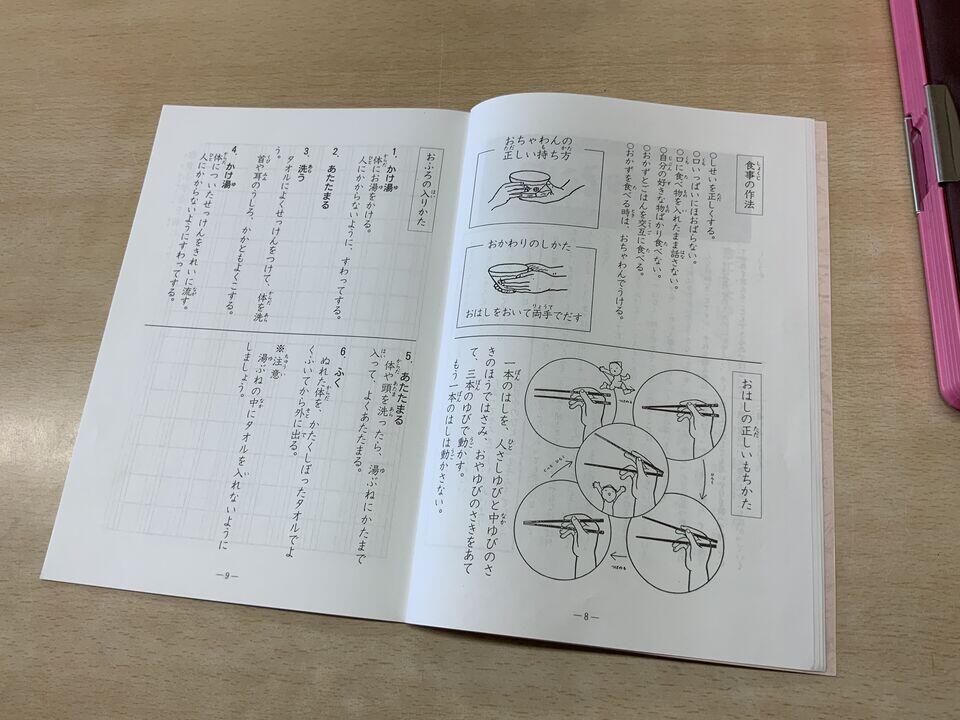 食事の作法
○しせいを正しくする。
○口いっぱいにほおばらない。
○口に食べ物を入れたまま話さない。
○自分の好きな物ばかり食べない。
○おかずとごはんを交互に食べる。
○おかずを食べる時は、おちゃわんでうける。
おちゃわんの
正しい持ち方
おかわりのしかた
おはしをおいて両手でだす
おはしの正しいもちかた
一本のはしを、人さしゆびと中ゆびのさ
きのほうではさみ、おやゆびのさきをあて
て、三本のゆびで動かす。
もう一本のはしは動かさない。
―8―
おふろの入りかた
1. かけ湯
体にお湯をかける。
人にかからないように、すわってする。
2. あたたまる
3. 洗う
タオルによくせっけんをつけて、体を洗
う。
首や耳のうしろ、かかともよくこする。
4. かけ湯
体についたせっけんをきれいに流す。
人にかからないようにすわってする。
5. あたたまる
体や頭を洗ったら、湯ぶねにかたまで
入って、よくあたたまる。
6. ふく
ぬれた体を、かたくしぼったタオルでよ
くふいてから外に出る。
※注意
湯ぶねの中にタオルを入れないように
しましょう。
―9―